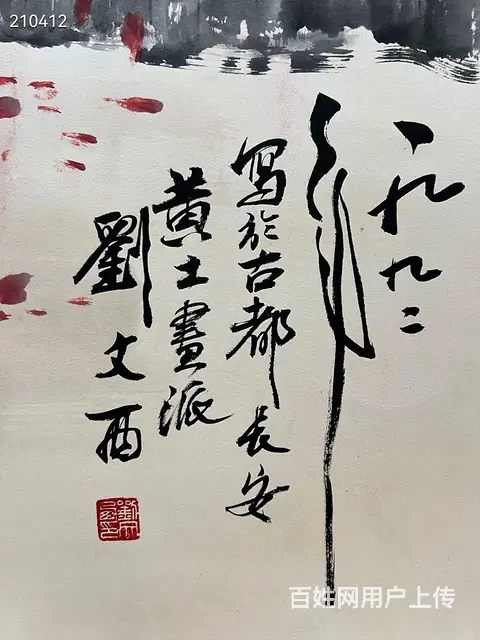 210412
一九九二年
寫於古都長安
黄土畫派
劉文西
百姓网用户上传